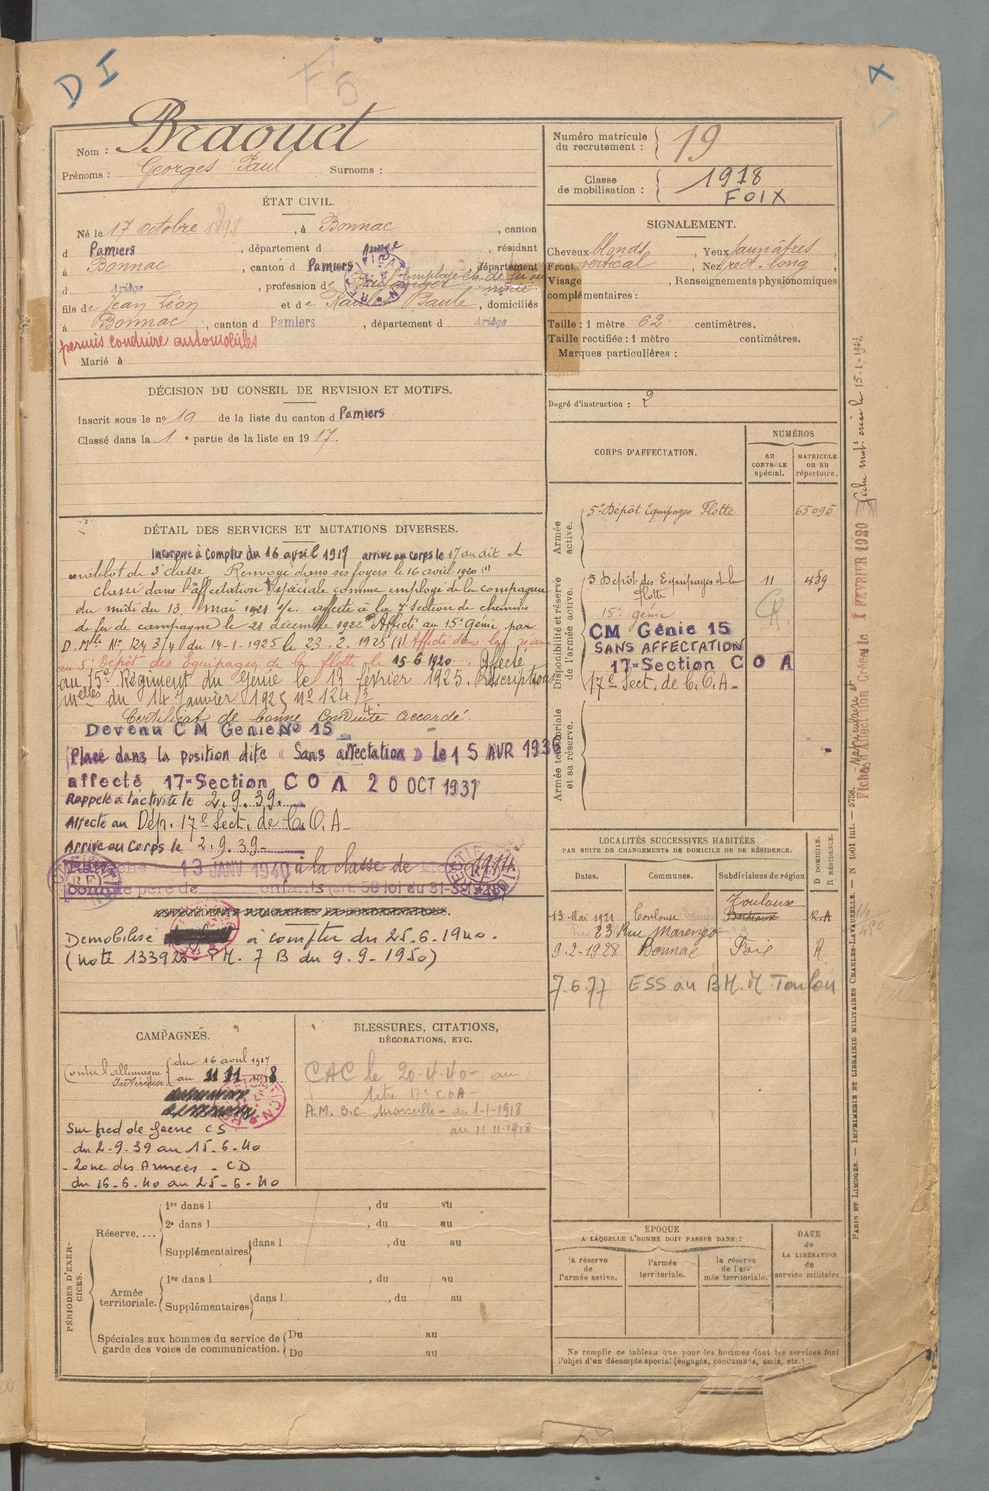 D I
F 5
X
Nom : Braouet
Prénoms : Georges Paul Surnoms :
ÉTAT CIVIL.
Né le 17 octobre 1898, à Bonnac, canton
d Pamiers, département d Ariège, résidant
à Bonnac, canton d Pamiers, département
d Ariège, profession de employé ch. de fer du
fils de Jean Léon et de Paule, domiciliés
à Bonnac, canton d Pamiers, département d Ariège
permis conduire automobiles
Marié à
DÉCISION DU CONSEIL DE REVISION ET MOTIFS.
Inscrit sous le nº 19 de la liste du canton d Pamiers
Classé dans la 1 e partie de la liste en 1917.
DÉTAIL DES SERVICES ET MUTATIONS DIVERSES.
Incorporé à Compter du 16 avril 1917 arrive au corps le 17 au dit et
matelot de 3e classe Renvoyé dans ses foyers le 16 avril 1920 (1)
Classé dans l'affectation spéciale comme employé de la compagnie
du midi du 13 mai 1921 affecté à la 7 Section de chemins
de fer de campagne le 21 décembre 1922 Affecté au 15e Génie par
D. Mle Nº 124 3/4 du 14-1-1925 le 23-2-1925 (1) Affecté dans la réserve
au 5e Dépôt des Equipages de la flotte le 15-6-1920 Affecté
au 15e Régiment du Génie le 13 février 1925. Prescriptions
mlles du 14 Janvier 1925 nº 124 3/4.
Certificat de bonne Conduite accordé.
Devenu C M Génie Nº 15
Placé dans la position dite « Sans affectation » le 15 AVR 1936
affecté 17e Section C O A 20 OCT 1937
Rappelé à l'activité le 2.9.39.
Affecté au Dép. 17e Sect. de C.O.A
Arrivé au Corps le 2.9.39
13 JANV 1940 à la classe de 1914
comme père de enfants (art. 58 loi du 31-3-1928)
Démobilisé à compter du 25-6-1940.
(note 133925 - PM. 7 B du 9-9-1950)
CAMPAGNES.
Contre l'allemagne du 16 avril 1917
Intérieur au 11 11 1918.
Sur pied de Guerre CS
du 2-9-39 au 15-6-40
- Zone des Armées - CD
du 16-6-40 au 25-6-40
BLESSURES, CITATIONS,
DÉCORATIONS, ETC.
CAC le 20-4-40- au
titre 17e COA
A.M. B.C. Marseille - du 1-1-1918
au 11 11-1918
PÉRIODES D'EXERCICES.
Réserve....
1re dans l , du au
2e dans l , du au
Supplémentaires dans l , du au
Armée territoriale.
1re dans l , du au
Supplémentaires dans l , du au
Spéciales aux hommes du service de garde des voies de communication.
Du au
Du au
Numéro matricule du recrutement : 19
Classe de mobilisation : 1918
FOIX
SIGNALEMENT.
Cheveux blonds, Yeux jaunâtres
Front vertical, Nez rect. long,
Visage , Renseignements physionomiques
complémentaires :
Taille : 1 mètre 62 centimètres.
Taille rectifiée : 1 mètre centimètres.
Marques particulières :
Degré d'instruction : 2
CORPS D'AFFECTATION.
NUMÉROS
AU CONTROLE spécial.
MATRICULE OU AU répertoire.
Armée active.
5e Dépôt Equipages Flotte 65095
Disponibilité et réserve de l'armée active.
5 Dépôt des Equipages de la flotte 11 459
15e génie
CM Génie 15
SANS AFFECTATION
17e Section C O A
17e Sect. de C.O.A -
Armée territoriale et sa réserve.
LOCALITÉS SUCCESSIVES HABITÉES
PAR SUITE DE CHANGEMENTS DE DOMICILE OU DE RÉSIDENCE.
Dates. Communes. Subdivisions de région D DOMICILE. R RÉSIDENCE.
Toulouse
13 Mai 1921 Toulouse Bordeaux R.A
23 Rue Marengo
9-2-1928 Bonnac Foix R
7.6.77 ESS au BM.M. Toulon
ÉPOQUE
A LAQUELLE L'HOMME DOIT PASSER DANS :
la réserve de l'armée active. l'armée territoriale. la réserve de l'armée territoriale.
DATE de LA LIBÉRATION du service militaire.
Ne remplir ce tableau que pour les hommes dont les services font
l'objet d'un décompte spécial (engagés, condamnés, omis, etc.)
PARIS ET LIMOGES. — IMPRIMERIE ET LIBRAIRIE MILITAIRES CHARLES-LAVAUZELLE. — N 1601 Int. — 5738.
Fiche Affection Créée le 1 FEVRIER 1920